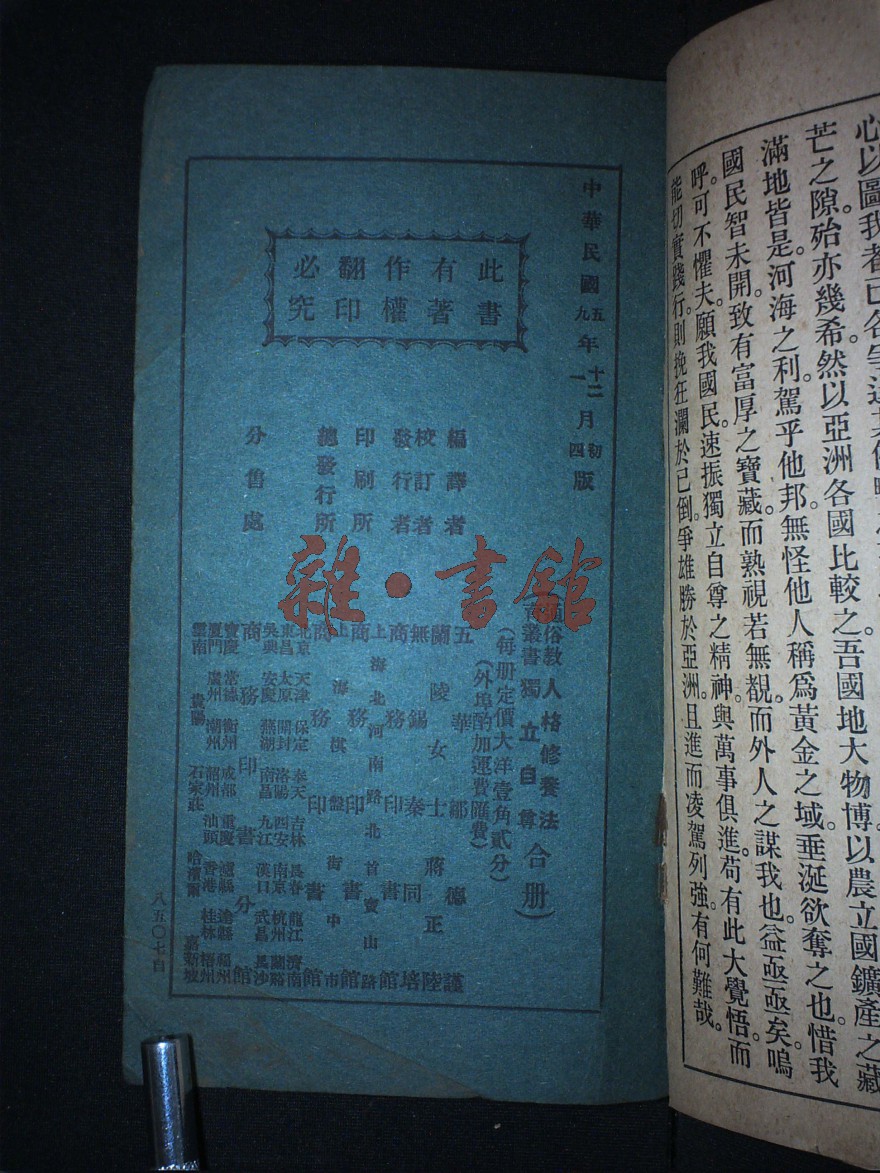 心以圖我者已各
芒之隙。殆亦幾希。然以亞洲各國比較之。吾國地大物博。以農立國。鑛產之藏
滿地皆是。河海之利。駕乎他邦。無怪他人稱爲黃金之域。垂涎欲奪之也。惜我
國民智未開。致有富厚之寶藏。而熟視若無覩。而外人之謀我也。益亟亟矣。嗚
呼。可不懼夫。願我國民。速振獨立自尊之精神。與萬事俱進。苟有此大覺悟。而
能切實踐行。則挽狂瀾於已倒。爭雄勝於亞洲。且進而凌駕列強。有何難哉。
中華民國五年十二月初版
九年一月四版
此書
有著
作權
翻印
必究
通俗教育叢書
人格修養法
獨立自尊
合册)
(每册定價大洋壹角貳分)
(外埠酌加運費匯費)
編譯者 五華鄒德謹
蘭陵女士蔣正陸
校訂者 無錫秦同培
發行者 商務印書館
印刷所 上海北河南路北首寶山路
商務印書館
總發行所 上海棋盤街中市
商務印書館
分售處 北京 天津 保定 奉天 吉林 長春 龍江 濟南
東昌 太原 開封 洛陽 西安 南京 杭州 蘭谿
吳興 安慶 蕪湖 南昌 九江 漢口 武昌 長沙
商務印書分館
寶慶 常德 衡州 成都 重慶 瀘縣 福州
廈門 廣州 潮州 韶州 汕頭 香港 桂林 梧州
雲南 貴陽 石家莊 哈爾濱 嘉新坡
八五〇七自
雜·書館